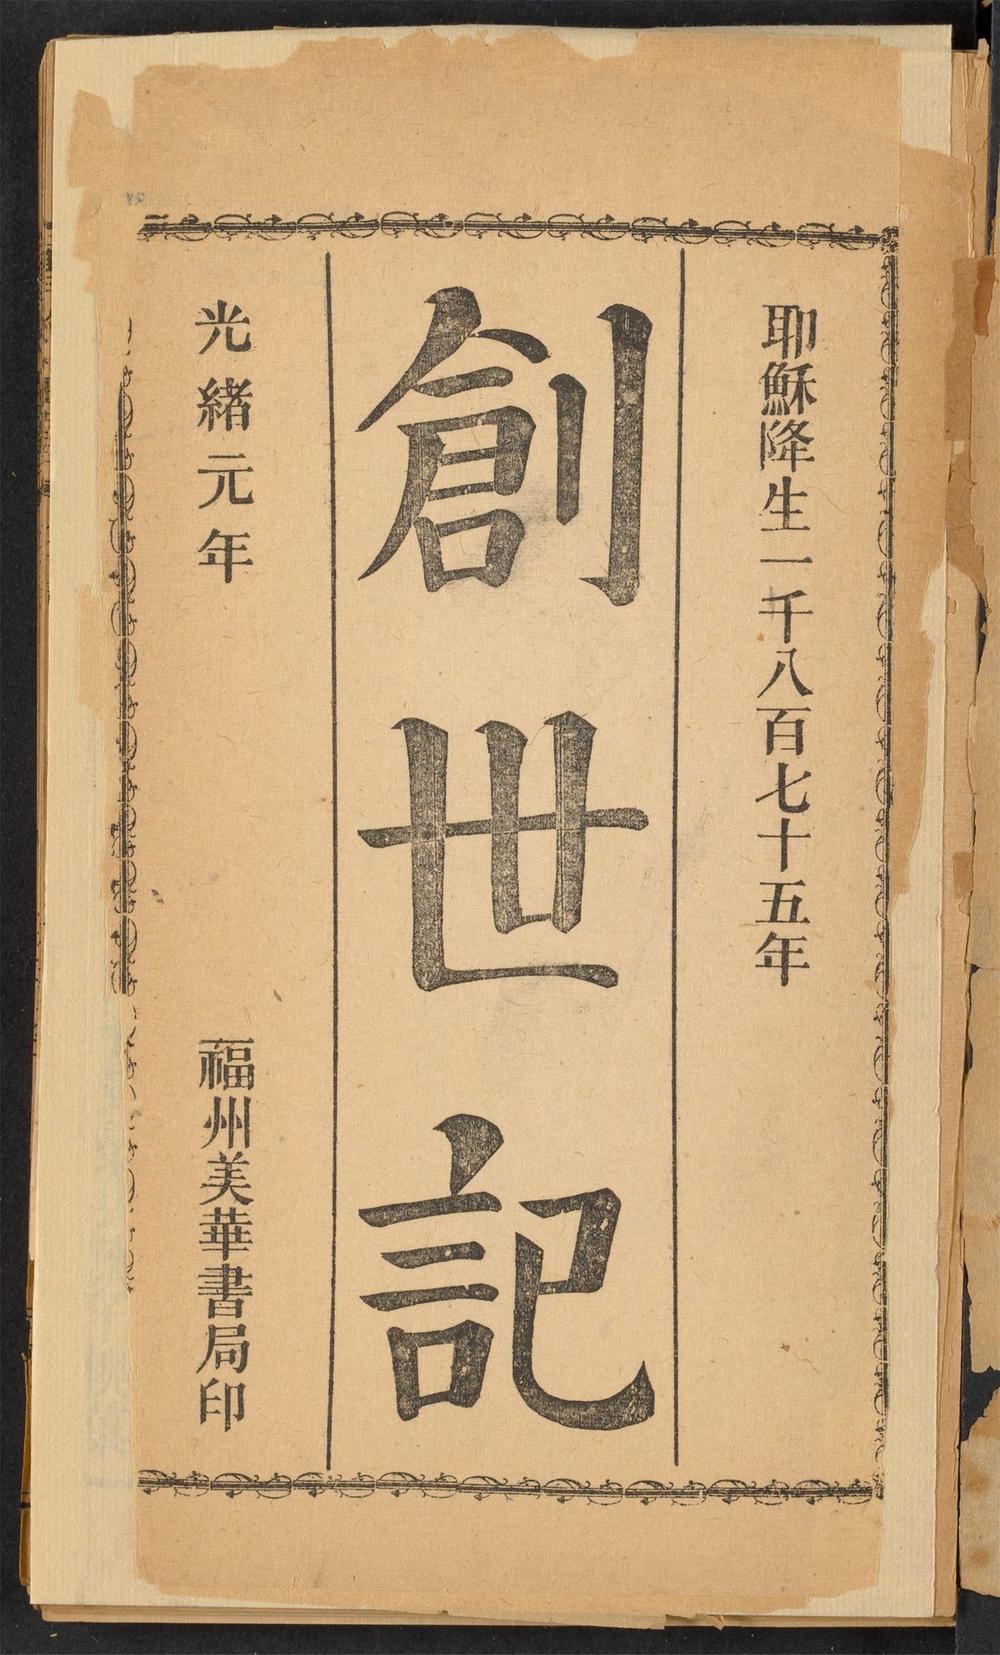 耶穌降生一千八百七十五年
創世記
光緒元年
福州美華書局印